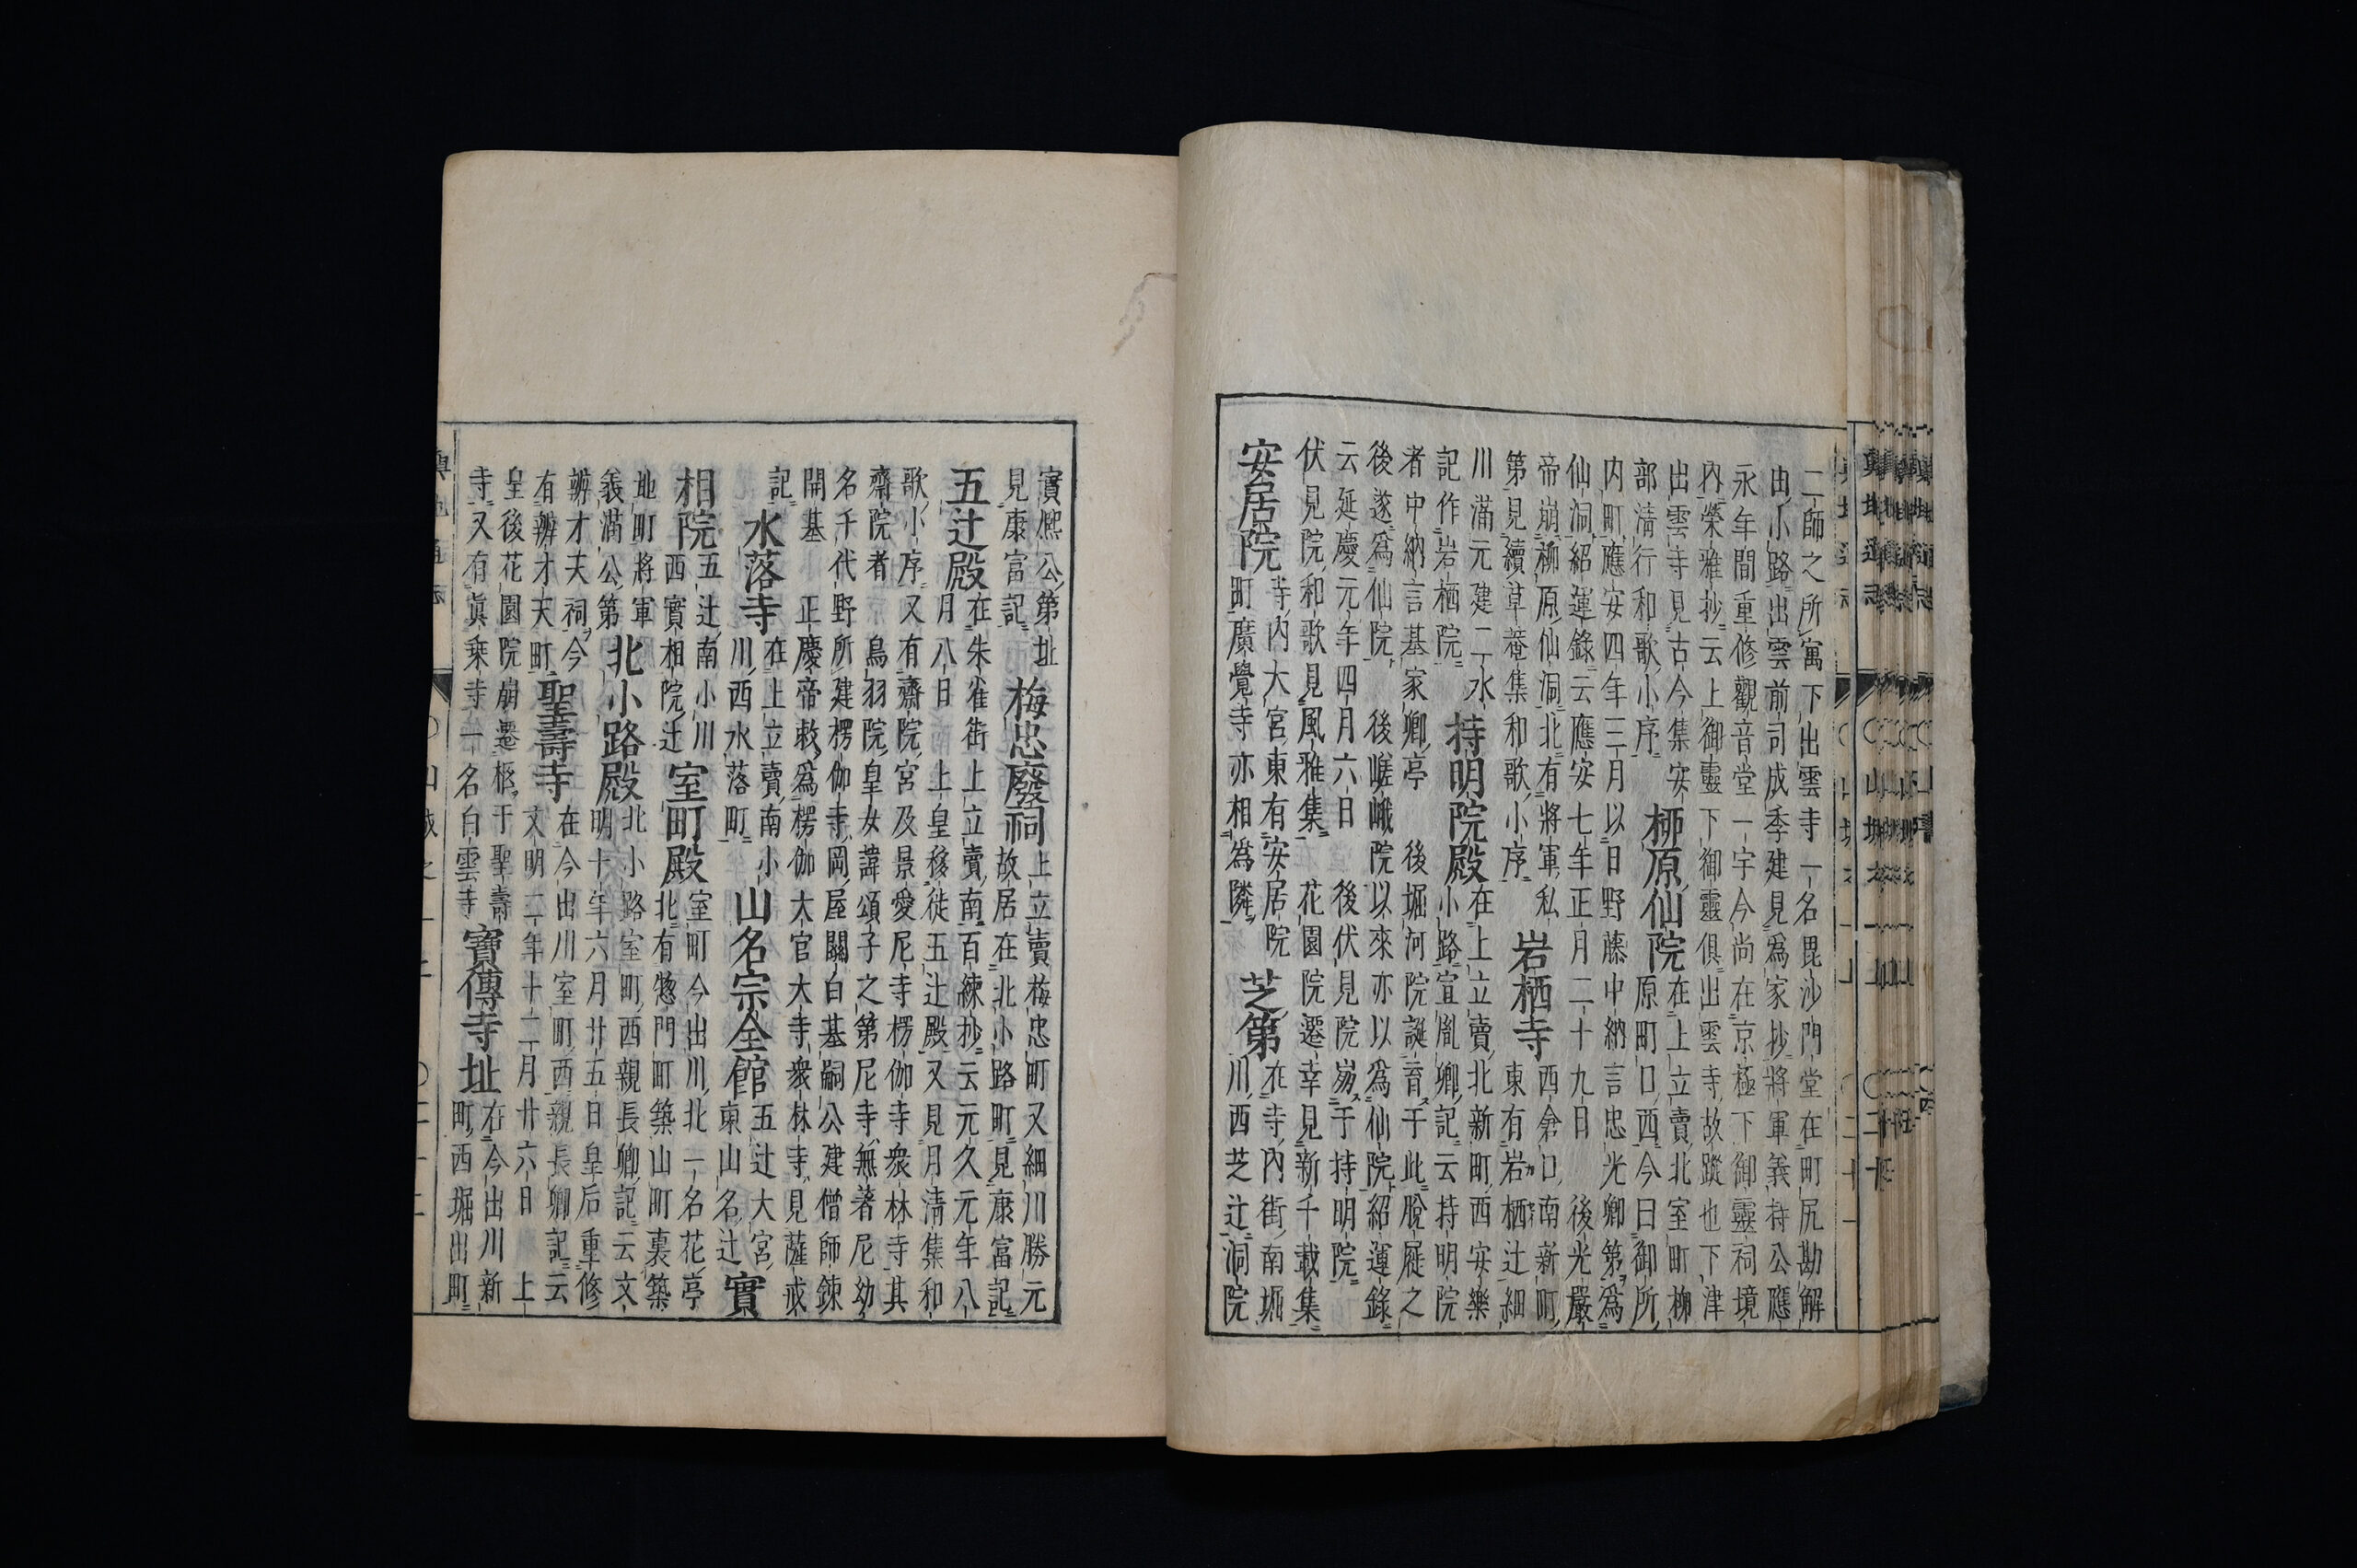 二師之所寓下出雲寺一名毘沙門堂在町尻勘解
由小路出雲前司成季建見爲家抄將軍義持公應
永年間重修觀音堂一宇今尚在京極下御靈祠境
內榮雅抄云上御靈下御靈俱出雲寺故蹤也下津
出雲寺見古今集安
部淸行和歌小序
柳原仙院
在上立賣北室町柳
原町口西今曰御所
內町應安四年三月以日野藤中納言忠光卿第爲
仙洞紹運錄云應安七年正月二十九日後光嚴
帝崩柳原仙洞北有將軍私
第見續草菴集和歌小序
岩栖寺
西倉口南新町
東有岩栖辻細
川滿元建二水
記作岩栖院
持明院殿
在上立賣北新町西安樂
小路宜胤卿記云持明院
者中納言基家卿亭後堀河院誕育于此脫屣之
後遂爲仙院後嵯峨院以來亦以爲仙院紹運錄
云延慶元年四月六日後伏見院崩于持明院
伏見院和歌見風雅集花園院遷幸見新千載集
安居院
寺內大宮東有安居院
町廣覺寺亦相爲隣
芝第
在寺內街南堀
川西芝辻洞院
實熙公第址
見康富記
梅忠廢祠
上立賣梅忠町又細川勝元
故居在北小路町見康富記
五辻殿
在朱雀街上立賣南百練抄云元久元年八
月八日上皇移徙五辻殿又見月淸集和
歌小序又有齋院宮及景愛尼寺楞伽寺衆林寺其
齋院者鳥羽院皇女諱頌子之第尼寺無著尼幼
名千代野所建楞伽寺岡屋關白基嗣公建僧師鍊
開基正慶帝敕爲楞伽大官大寺衆林寺見薩戒
記
水落寺
在上立賣南小
川西水落町
山名宗全館
五辻大宮
東山名辻
實
相院
五辻南小川
西實相院辻
室町殿
室町今出川北一名花亭
北有惣門町築山町裏築
地町將軍
義滿公第
北小路殿
北小路室町西親長卿記云文
明十年六月廿五日皇后重修
辨才天祠今
有辨才天町
聖壽寺
在今出川室町西親長卿記云
文明二年十二月廿六日上
皇後花園院崩遷柩于聖壽
寺又有眞乗寺一名白雲寺
寶傳寺址
在今出川新
町西堀出町